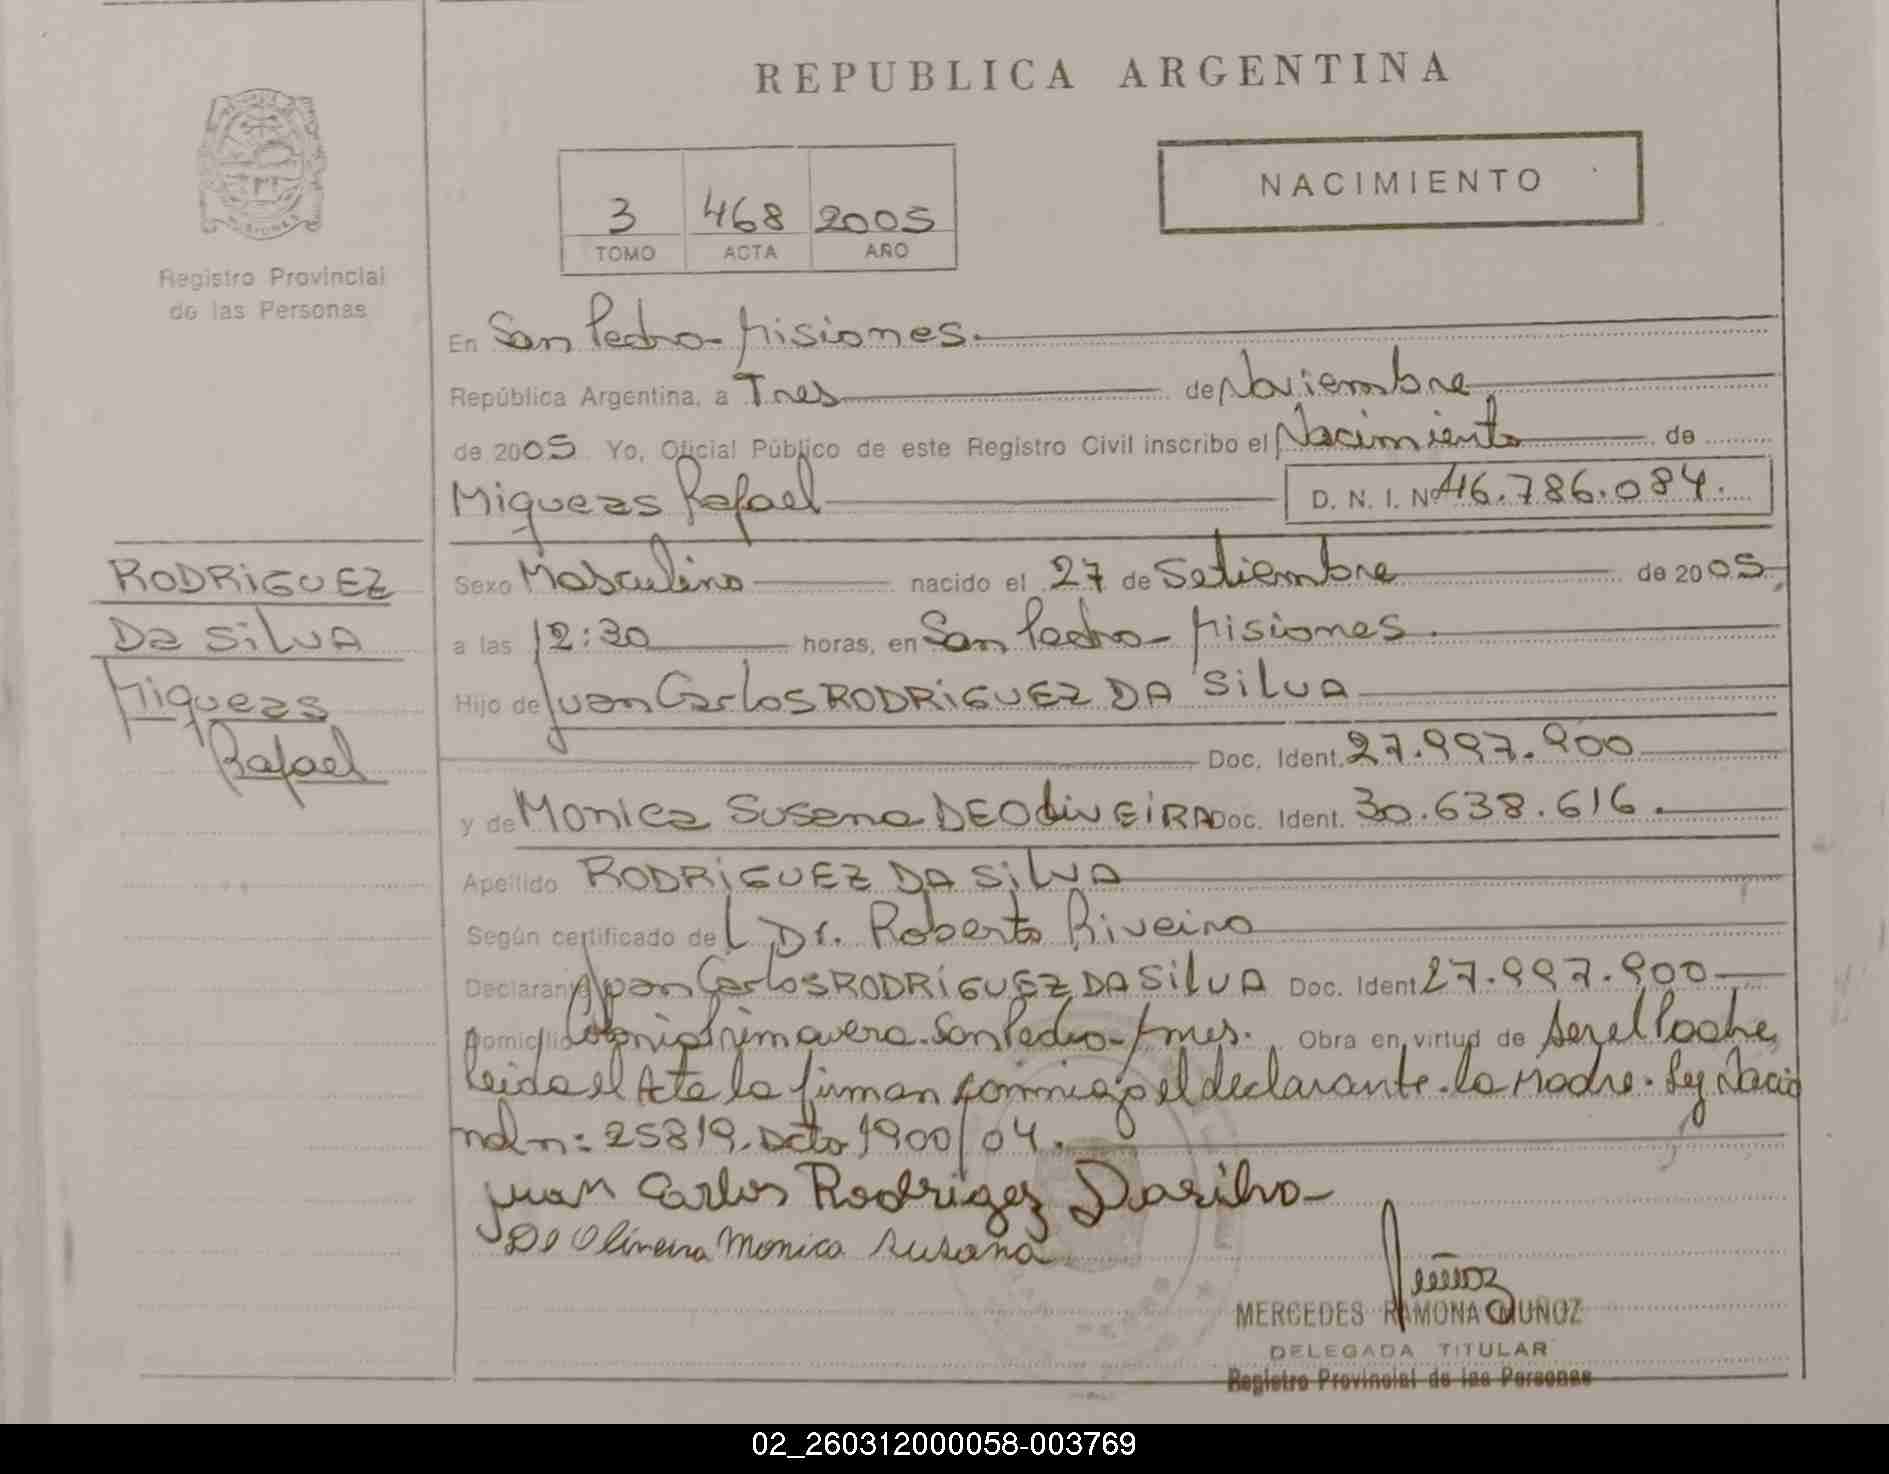 REPUBLICA ARGENTINA
NACIMIENTO
3 468 2005
TOMO ACTA AÑO
Registro Provincial
de las Personas
En San Pedro - Misiones.
República Argentina, a Tres de Noviembre
de 2005 Yo, Oficial Público de este Registro Civil inscribo el Nacimiento de
Miqueas Rafael D. N. I. Nº 46.786.084.
RODRIGUEZ
DA SILVA
Miqueas
Rafael
Sexo Masculino nacido el 27 de Setiembre de 2005
a las 12:30 horas, en San Pedro - Misiones.
Hijo de Juan Carlos RODRIGUEZ DA SILVA
Doc. Ident. 27.997.900
y de Monica Susana DE OLIVEIRA Doc. Ident. 30.638.616.
Apellido RODRIGUEZ DA SILVA
Según certificado del Dr. Roberto Riveiro
Declarante Juan Carlos RODRIGUEZ DA SILVA Doc. Ident. 27.997.900
Domicilio Colonia Primavera - San Pedro - Mnes. Obra en virtud de ser el Padre
leida el Acta la firman conmigo el declarante - la Madre - Ley Nacio
nal n: 25819. Dcto 1900/04.
Juan Carlos Rodrigez Dasilva
De Oliveira Monica Susana
MERCEDES RAMONA MUÑOZ
DELEGADA TITULAR
Registro Provincial de las Personas
02_260312000058-003769